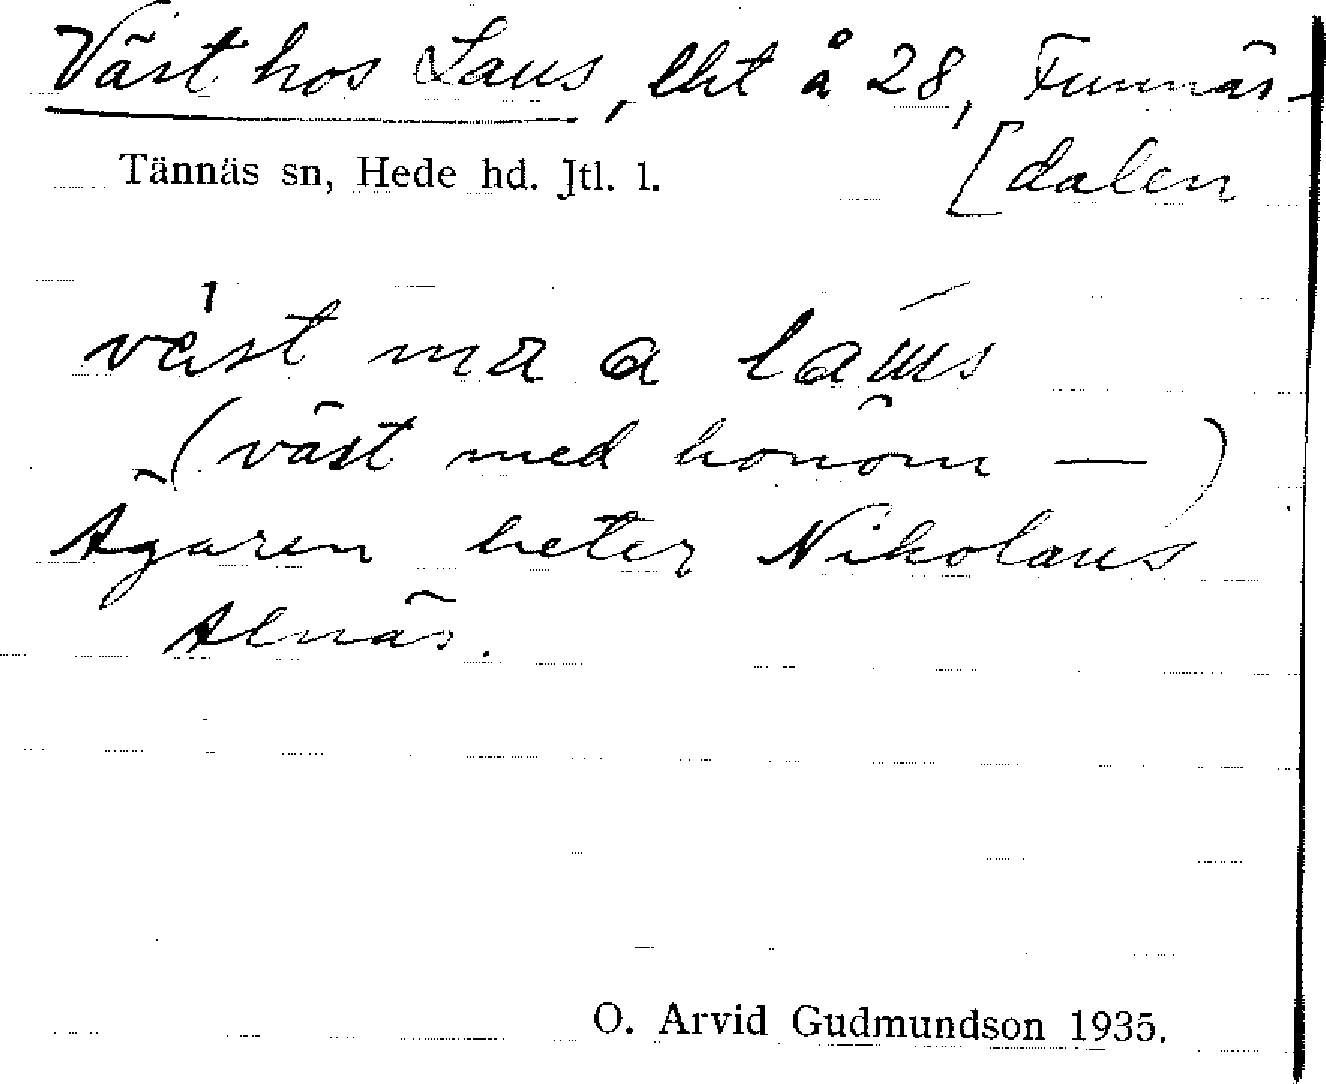 Väst hos Laus, lht å 28, Funnäs-
[dalen
Tännäs sn, Hede hd. Jtl. l.
väst ma a laus
(väst med honom —)
Ägaren heter Nikolaus
Alnäs.
O. Arvid Gudmundson 1935.